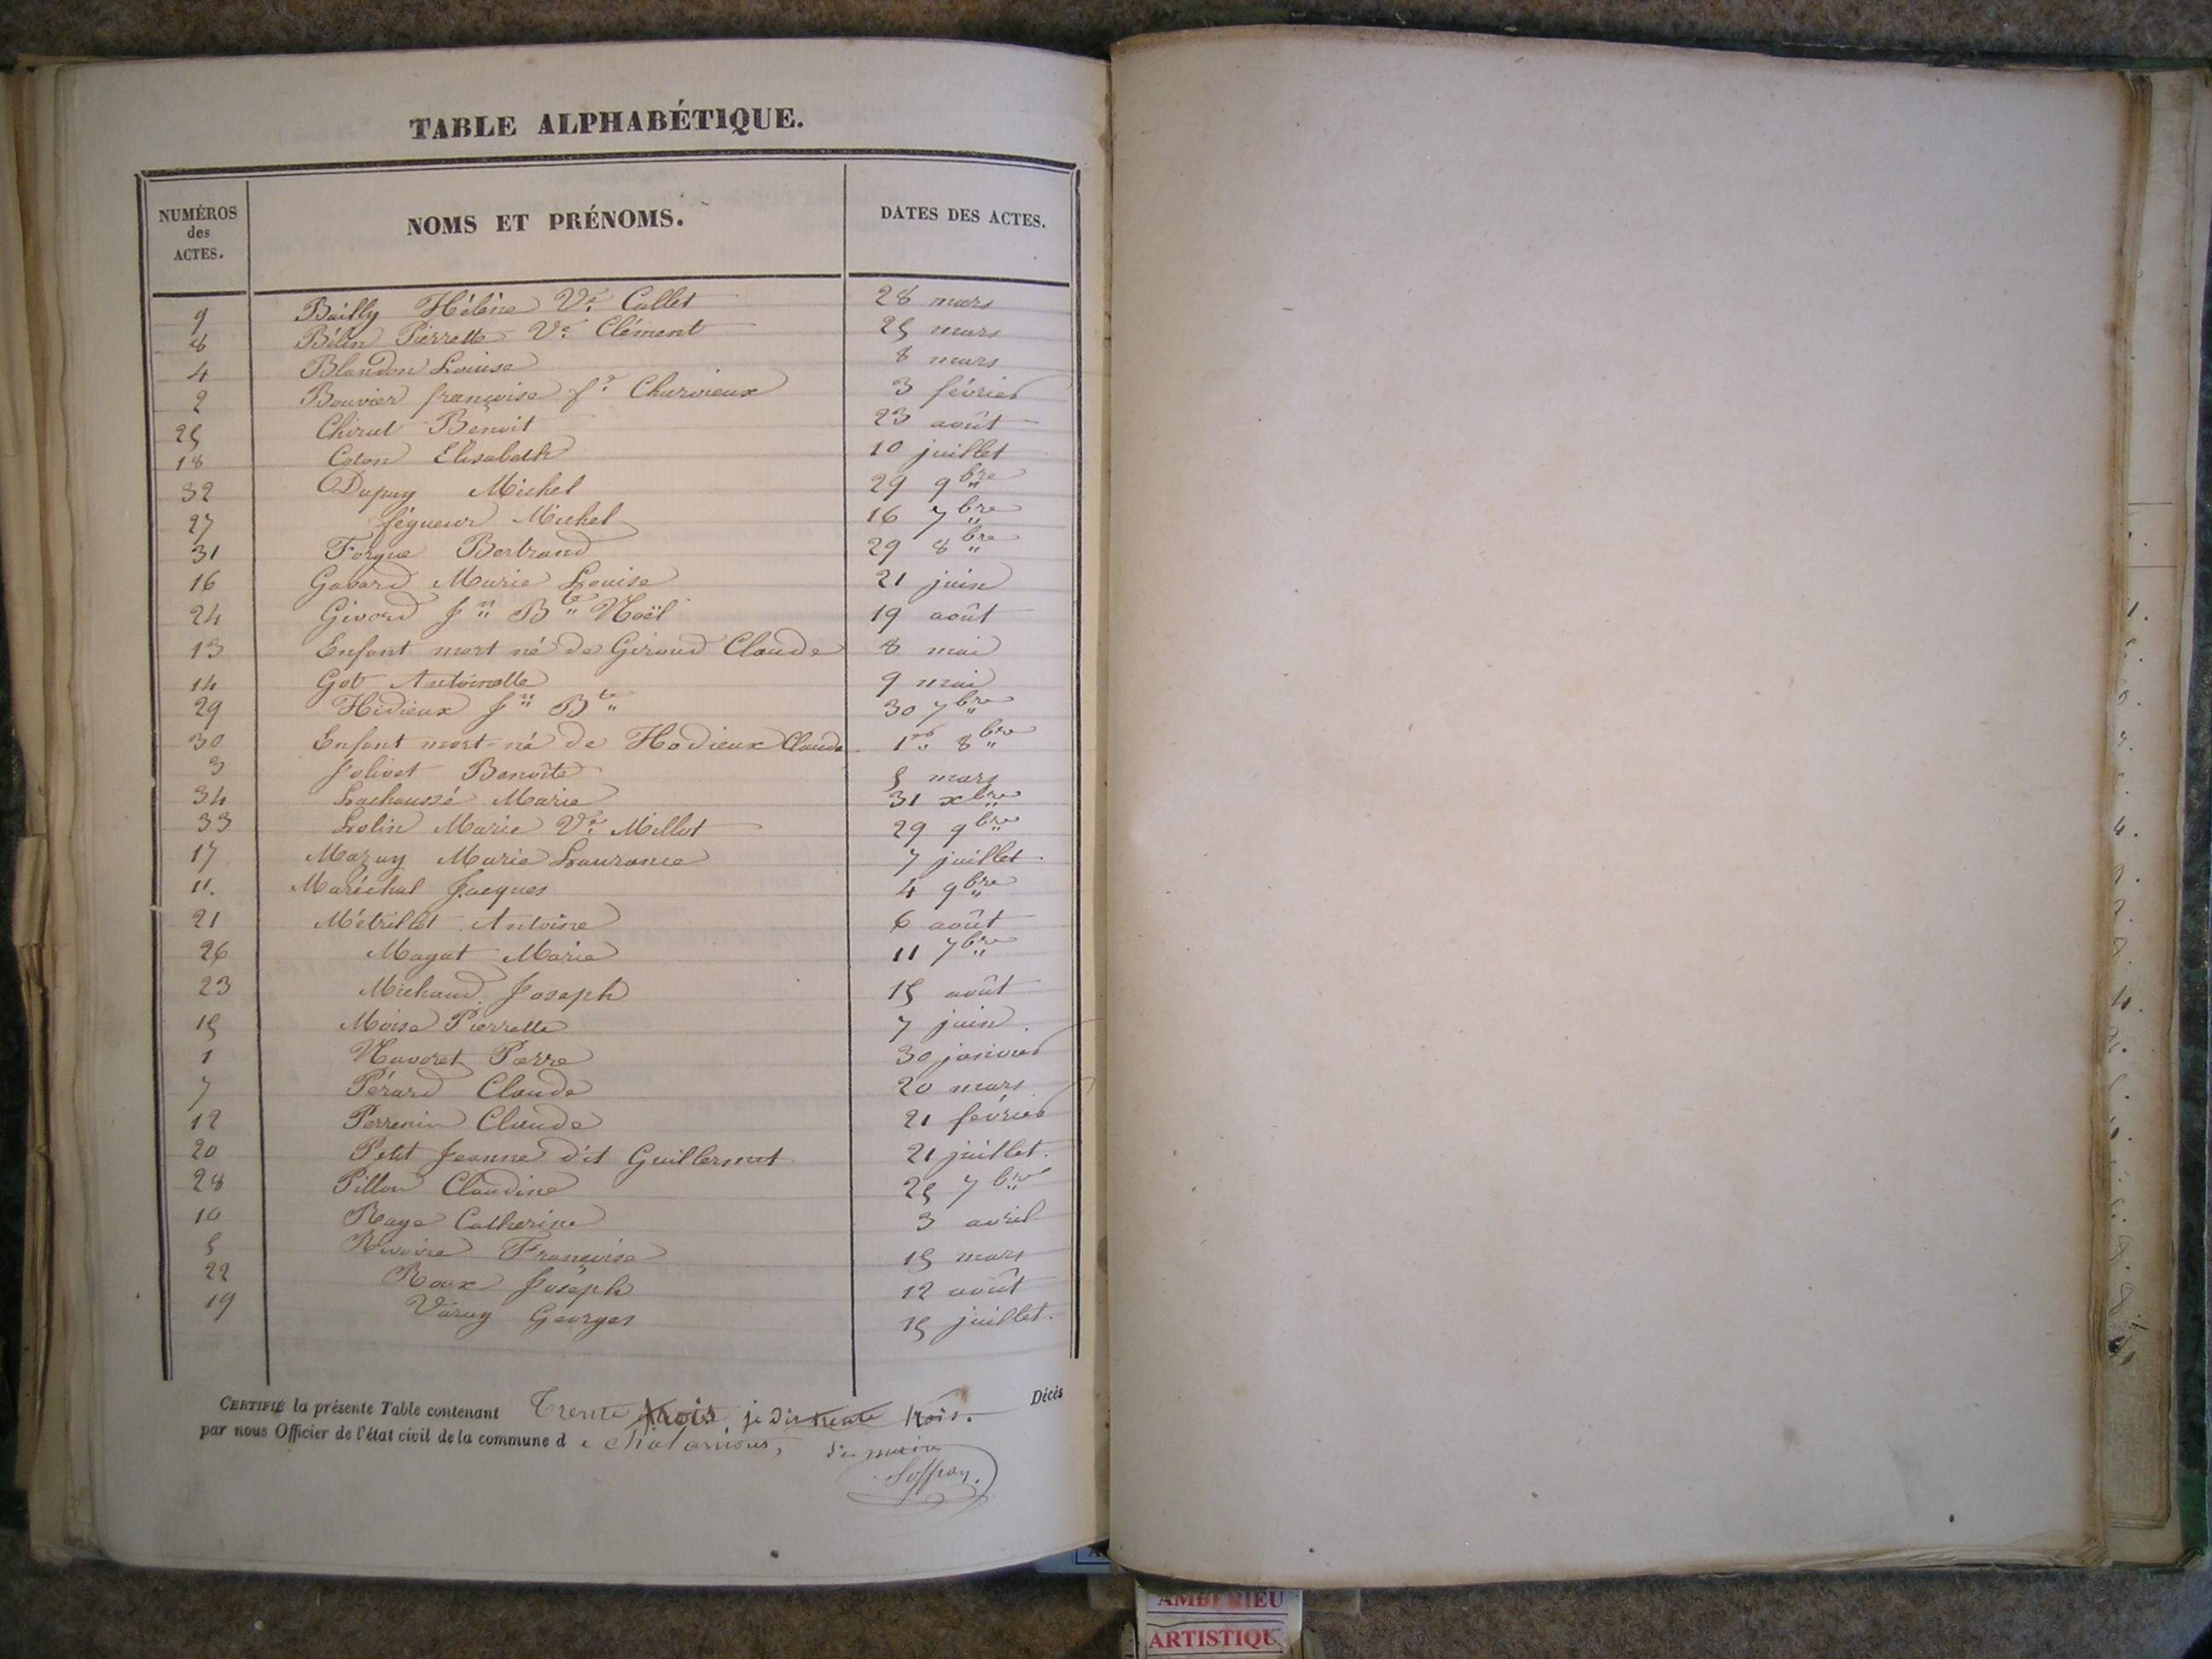 TABLE ALPHABÉTIQUE.
NUMÉROS des ACTES. NOMS ET PRÉNOMS. DATES DES ACTES.
9 Bailly Hélène Ve Collet 28 mars
8 Bélin Pierrette Ve Clément 25 mars
4 Blandon Louise 8 mars
2 Bouvier françoise fe Charvieux 3 février
25 Chirat Benoit 23 août
18 Coton Elisabeth 10 juillet
32 Dupuy Michel 29 9bre
27 féqueur Michel 16 7bre
31 Forgue Bertrand 29 8bre
16 Gavard Marie Louise 21 juin
24 Givord Jn Bte Noël 19 août
13 Enfant mort né de Giroud Claude 8 mai
14 Got Antoinette 9 mai
29 Hidieux Jn Bte 30 7bre
30 Enfant mort-né de Hodieux Claude 1er 8bre
3 Jolivet Benoîte 5 mars
34 Lachaussé Marie 31 xbre
33 Lolin Marie Ve Millot 29 9bre
17 Mazuy Marie Laurance 7 juillet
11. Maréchal Jacques 4 9bre
21 Métrillot Antoine 6 août
26 Magat Marie 11 7bre
23 Michaud Joseph 15 août
15 Moise Pierrette 7 juin.
1 Navoret Pierre 30 janvier
7 Pérard Claude 20 mars
12 Perrenin Claude 21 février
20 Petit Jeanne dit Guillermet 21 juillet.
28 Pillon Claudine 25 7bre
10 Raye Catherine 3 avril
5 Rivoire Françoise 15 mars
22 Roux Joseph 12 août
19 Varuy Georges 15 juillet.
CERTIFIÉ la présente Table contenant Trente trois je dis trente trois. Décès
par nous Officier de l'état civil de la commune de Chalamont, le maire
AMBERIEU
ARTISTIQU